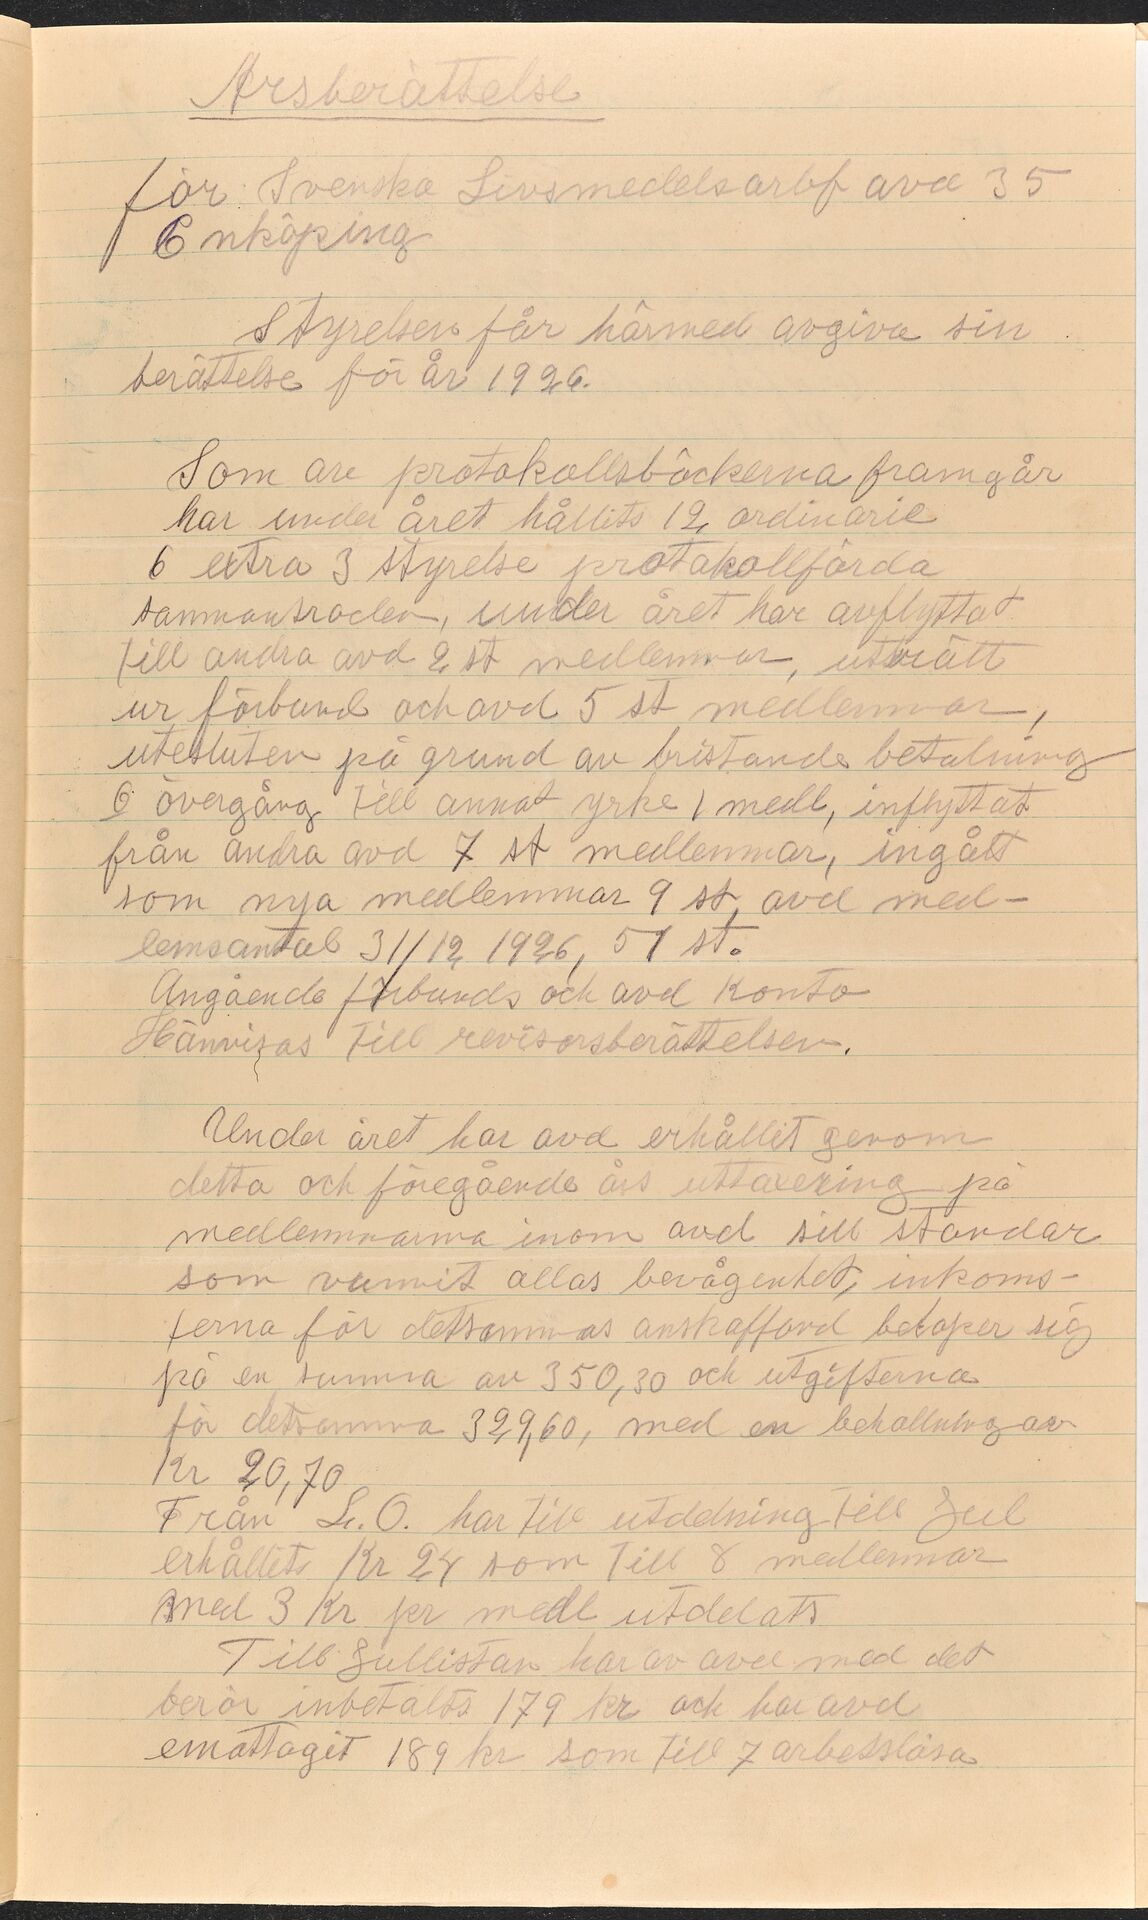 Årsberättelse
för Svenska Livsmedelsarbf avd 35
Enköping
Styrelsen får härmed avgiva sin
berättelse för år 1926.
Som av protokollsböckerna framgår
har under året hållits 12 ordinarie
6 extra 3 styrelse protokollförda
sammanträden, under året har avflyttat
till andra avd 2 st medlemmar, utträtt
ur förbund och avd 5 st medlemmar,
utesluten på grund av bristande betalning
6 övergång till annat yrke 1 medl, inflyttat
från andra avd 7 st medlemmar, ingått
som nya medlemmar 9 st, avd med-
lemsantal 31/12 1926, 51 st.
Angående förbunds och avd konto
Hänvisas till revisorsberättelsen.
Under året har avd erhållit genom
detta och föregående års uttaxering på
medlemmarna inom avd sitt standar
som vunnit allas bevågenhet, inkoms-
terna för detsammas anskaffand belöper sig
på en summa av 350,30 och utgifterna
för detsamma 329,60, med en behållning av
Kr 20,70
Från L.O. har till utdelning till Jul
erhållits Kr 24 som till 8 medlemmar
med 3 Kr pr medl utdelats
Till Jullistan har av avd med det
berör inbetalts 179 kr och har avd
emottagit 189 kr som till 7 arbetslösa